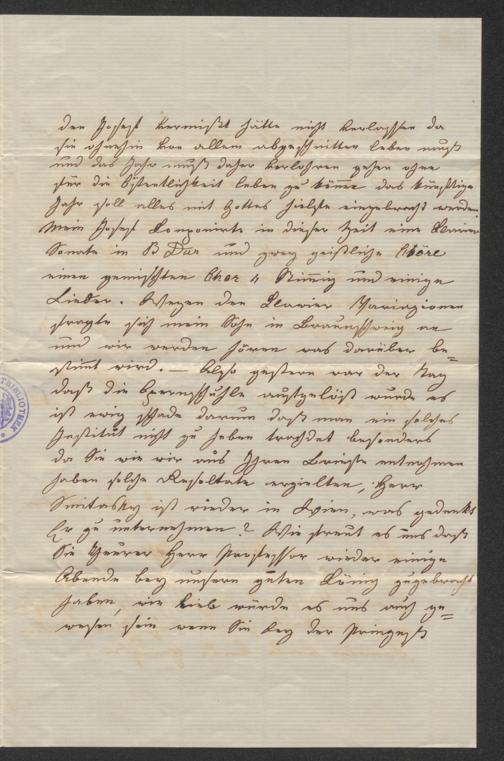 den Josef vermißt hätte nicht verlassen da
sie ohnehin von allem abgeschnitten leben muß
und das Jahr muß daher verlohren gehen ohne
für die Öffentlichkeit leben zu könne das künftige
Jahr soll alles mit Gottes Hielfe eingebracht werden
Mein Josef Componirte in dieser Zeit eine Clavier
Sonate in B Dur und zwey geistliche Chöre
einen gemischten Chor 4 Stimmig und einige
Lieder. Wegen den Clavier Variazionen
fragte sich mein Sohn in Braunschweig an
und wir werden hören was darüber be=
stimt wird. — Also gestern war der Tag
daß die Opernschuhle aufgelöst wurde es
ist ewig schade darum daß man ein solches
Institut nicht zu heben trachtet besonders
da Sie wie wir aus Ihren Briefe entnehmen
haben solche Resoltate erzielten, Herr
ist wieder in Wien, was gedenkt
Er zu unternehmen? Wie freut es uns daß
Sie Theurer Herr Professor wieder einige
Abende bey unsern guten König zugebracht
haben, wie Lieb würde es uns auch ge=
wesen sein wenn Sie bey der Prinzeß